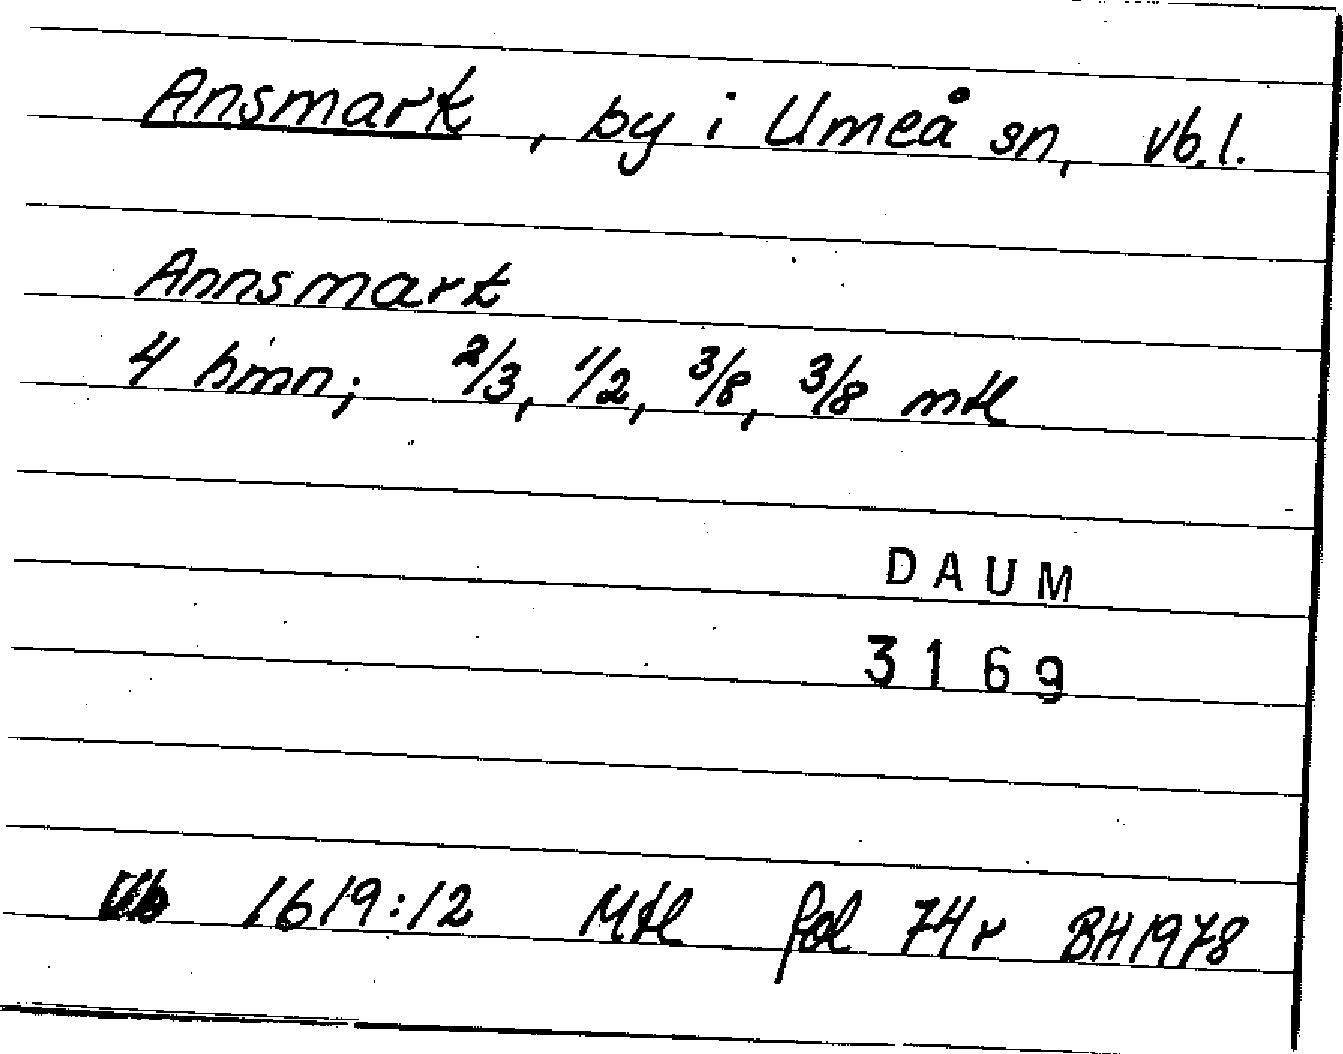 Ansmark, by i Umeå sn, Vb.l.
Annsmark
4 hmn; 2/3, 1/2, 3/8, 3/8 mtl
DAUM
3169
Vb 1619:12 Mtl fol 74r BH1978